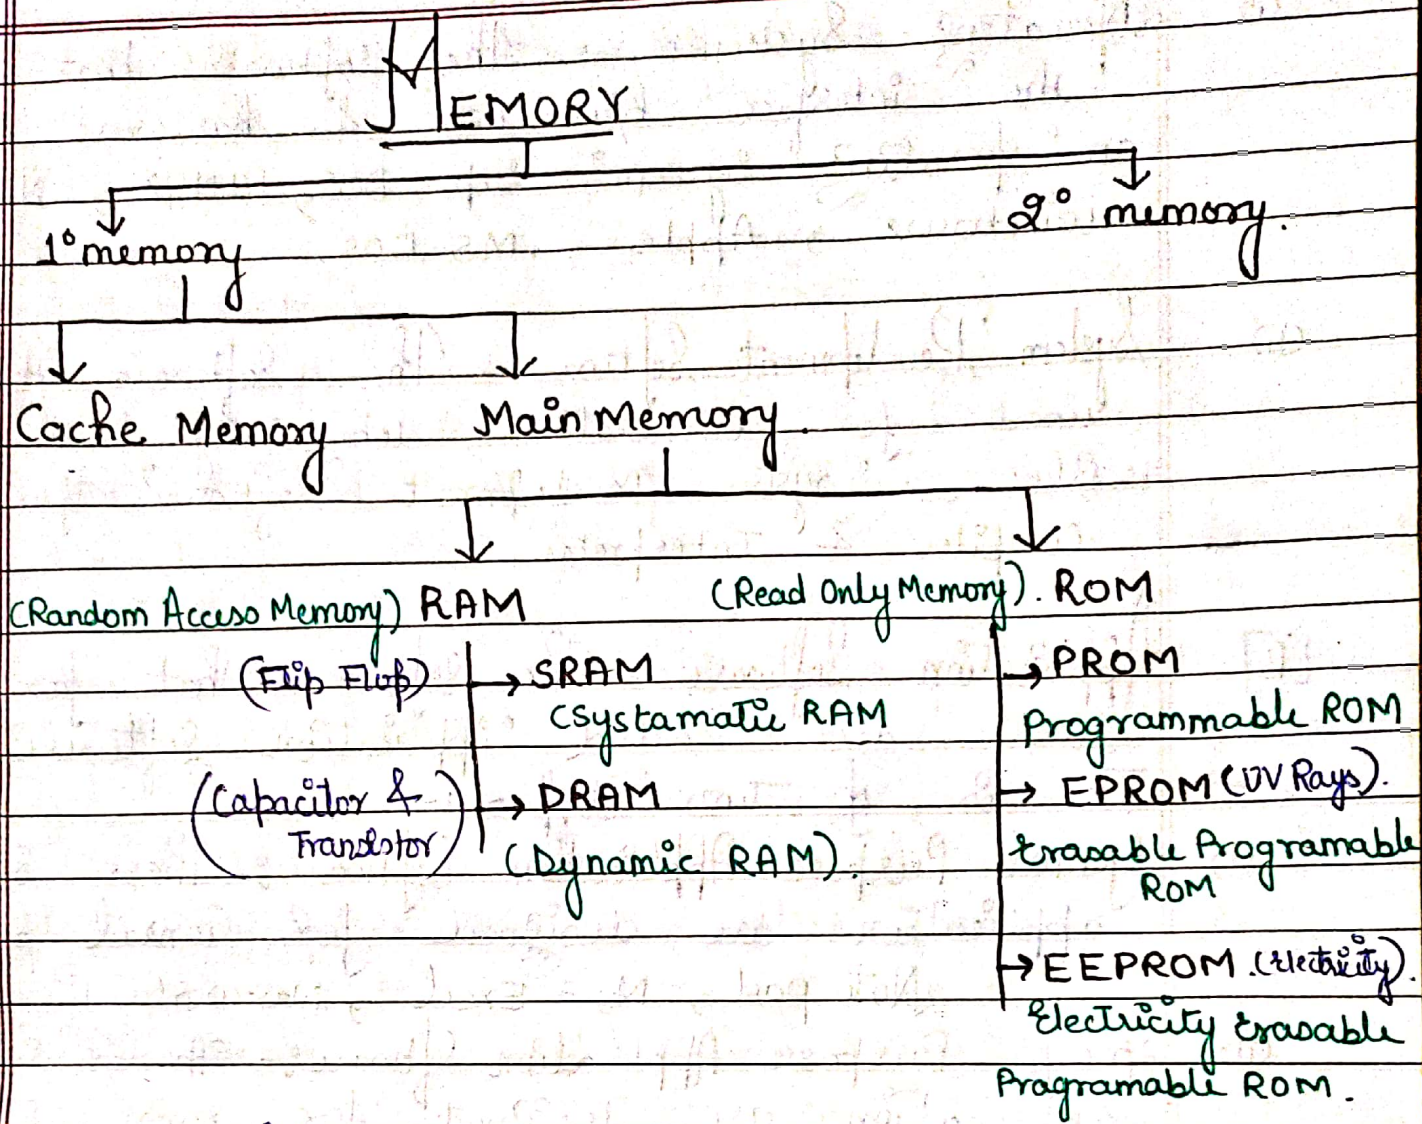 MEMORY
1° memory
2° memory.
Cache Memory
Main Memory.
(Random Access Memory) RAM
(Read Only Memory). ROM
(Flip Flop) → SRAM
(Systamatic RAM
(Capacitor & Transistor) → DRAM
(Dynamic RAM).
→ PROM
Programmable ROM
→ EPROM (UV Rays).
Erasable Programable
ROM
→ EEPROM. (Electricity).
Electricity Erasable
Programable ROM.